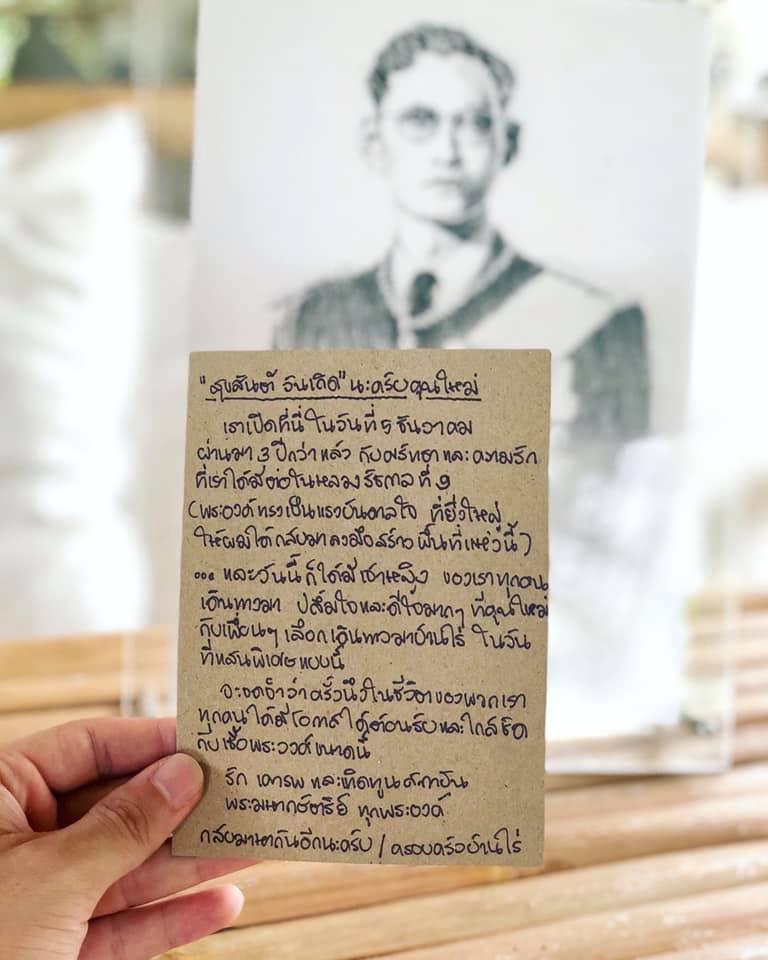 "สุขสันต์ วันเกิด" นะครับคุณใหม่
เราเปิดที่นี่ ในวันที่ 5 ธันวาคม
ผ่านมา 3 ปีกว่าแล้ว กับศรัทธา และ ความรัก
ที่เราได้มีต่อในหลวง รัชกาล ที่ 9
(พระองค์ทรงเป็นแรงบันดาลใจ ที่ยิ่งใหญ่
ให้ผมได้กลับมาลงมือสร้าง พื้นที่แห่งนี้)
... และวันนี้ ก็ได้มีเจ้าหญิง ของเราทุกคน
เดินทางมา ปลื้มใจและดีใจมากๆ ที่คุณใหม่
กับเพื่อนๆ เลือกเดินทางมาบ้านไร่ ในวัน
ที่แสนพิเศษแบบนี้
จะจดจำว่าครั้งนึงในชีวิตของพวกเรา
ทุกคนได้มีโอกาสได้ต้อนรับและใกล้ชิด
กับเชื้อพระองค์ขนาดนี้
รัก เคารพ และเทิดทูนสถาบัน
พระมหากษัตริย์ ทุกพระองค์
กลับมาหากันอีกนะครับ / ครอบครัวบ้านไร่